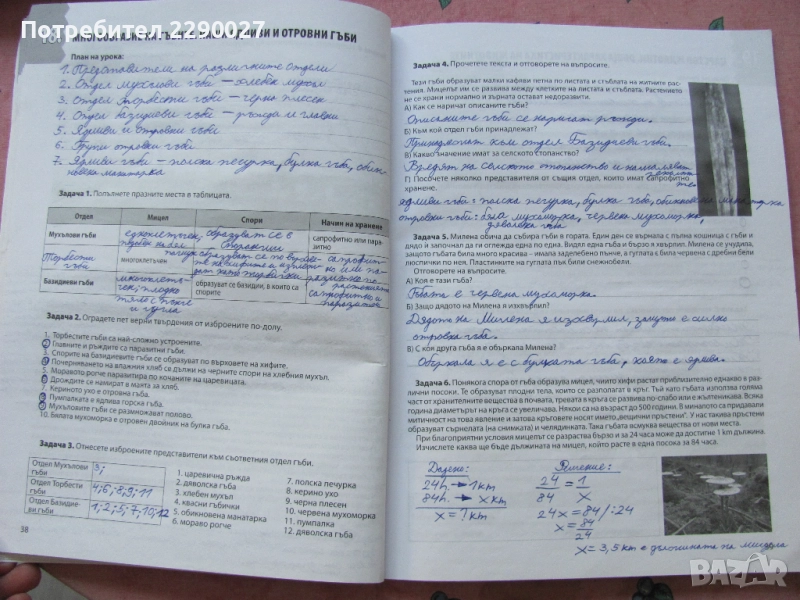 Потребител 2290027
МНОГООБРАЗИЕ НА ГЪБИТЕ. ЯДЛИВИ И ОТРОВНИ ГЪБИ
План на урока:
1. Представители на различните отдели
2. Отдел мухлови гъби – хлебен мухъл
3. Отдел торбести гъби – черна плесен
4. Отдел базидиеви гъби – ръжда и главни
5. Ядливи и отровни гъби
6. Други отровни гъби
7. Ядливи гъби – полска печурка, булка гъба, обикновена манатарка
Задача 1. Попълнете празните места в таблицата.
Отдел Мицел Спори Начин на хранене
Мухълови гъби едноклетъчен, образуват се в спорангии сапрофитно или паразитно
Торбести гъби многоклетъчен
Базидиеви гъби образуват се базидии, в които са спорите
Задача 2. Оградете пет верни твърдения от изброените по-долу.
1. Торбестите гъби са най-сложно устроените.
2. Главните и ръждите са паразитни гъби.
3. Спорите на базидиевите гъби се образуват по върховете на хифите.
4. Почерняването на влажния хляб се дължи на черните спори на хлебния мухъл.
5. Моравото рогче паразитира по кочаните на царевицата.
6. Дрождите се намират в маята за хляб.
7. Кериното ухо е отровна гъба.
8. Пумпалката е ядлива горска гъба.
9. Мухъловите гъби се размножават полово.
10. Бялата мухоморка е отровен двойник на булка гъба.
Задача 3. Отнесете изброените представители към съответния отдел гъби.
Отдел Мухълови гъби 3;
Отдел Торбести гъби 4; 6; 8; 9; 11
Отдел Базидиеви гъби 1; 2; 5; 7; 10; 12
1. царевична ръжда
2. дяволска гъба
3. хлебен мухъл
4. квасни гъбички
5. обикновена манатарка
6. мораво рогче
7. полска печурка
8. керино ухо
9. черна плесен
10. червена мухоморка
11. пумпалка
12. дяволска гъба
38
Задача 4. Прочетете текста и отговорете на въпросите.
Тези гъби образуват малки кафяви петна по листата и стъблата на житните растения. Мицелът им се развива между клетките на листата и стъблата. Растението не се храни нормално и зърната остават недоразвити.
А) Как се наричат описаните гъби?
Описаните гъби се наричат ръжди.
Б) Към кой отдел гъби принадлежат?
Принадлежат към отдел Базидиеви гъби.
В) Какво значение имат за селското стопанство?
Вредят на селското стопанство и намаляват
Г) Посочете няколко представителя от същия отдел, които имат сапрофитно хранене.
ядливи гъби: полска печурка, булка гъба, обикновена манатарка
отровни гъби: бяла мухоморка, червена мухоморка, дяволска гъба
Задача 5. Милена обича да събира гъби в гората. Един ден се върнала с пълна кошница с гъби и дядо ѝ започнал да ги оглежда една по една. Видял една гъба и бързо я хвърлил. Милена се учудила, защото гъбата била много красива – имала задебелено пънче, а гуглата ѝ била червена с дребни бели люспички по нея. Пластинките на гуглата пък били снежнобели.
Отговорете на въпросите.
А) Коя е тази гъба?
Гъбата е червена мухоморка.
Б) Защо дядото на Милена я изхвърлил?
Дядото на Милена я изхвърлил, защото е силно отровна гъба.
В) С коя друга гъба я е объркала Милена?
Объркала я е с булката гъба, която е ядлива.
Задача 6. Понякога спора от гъба образува мицел, чиито хифи растат приблизително еднакво в различни посоки. Те образуват плодни тела, които са разположени в кръг. Тъй като гъбата използва голяма част от хранителните вещества в почвата, тревата в кръга се развива по-слабо или е жълтеникава. Всяка година диаметърът на кръга се увеличава. Някои са на възраст до 500 години. В миналото са придавали на това образувание магическо значение и затова кръговете носят името „вещерски пръстени". У нас такива пръстени образуват сърнелата (на снимката) и челядинката. Така гъбата асмуква вещества от нови места.
При благоприятни условия мицелът се разраства бързо и за 24 часа може да достигне 1 km дължина. Изчислете каква ще бъде дължината на мицел, който расте в една посока за 84 часа.
Дадено:
24h. → 1km
84h. → x km
x = ? km
Решение:
24/84 = 1/x
24x = 84 /:24
x = 84/24
x = 3,5 km е дължината на мицела
BAZAR